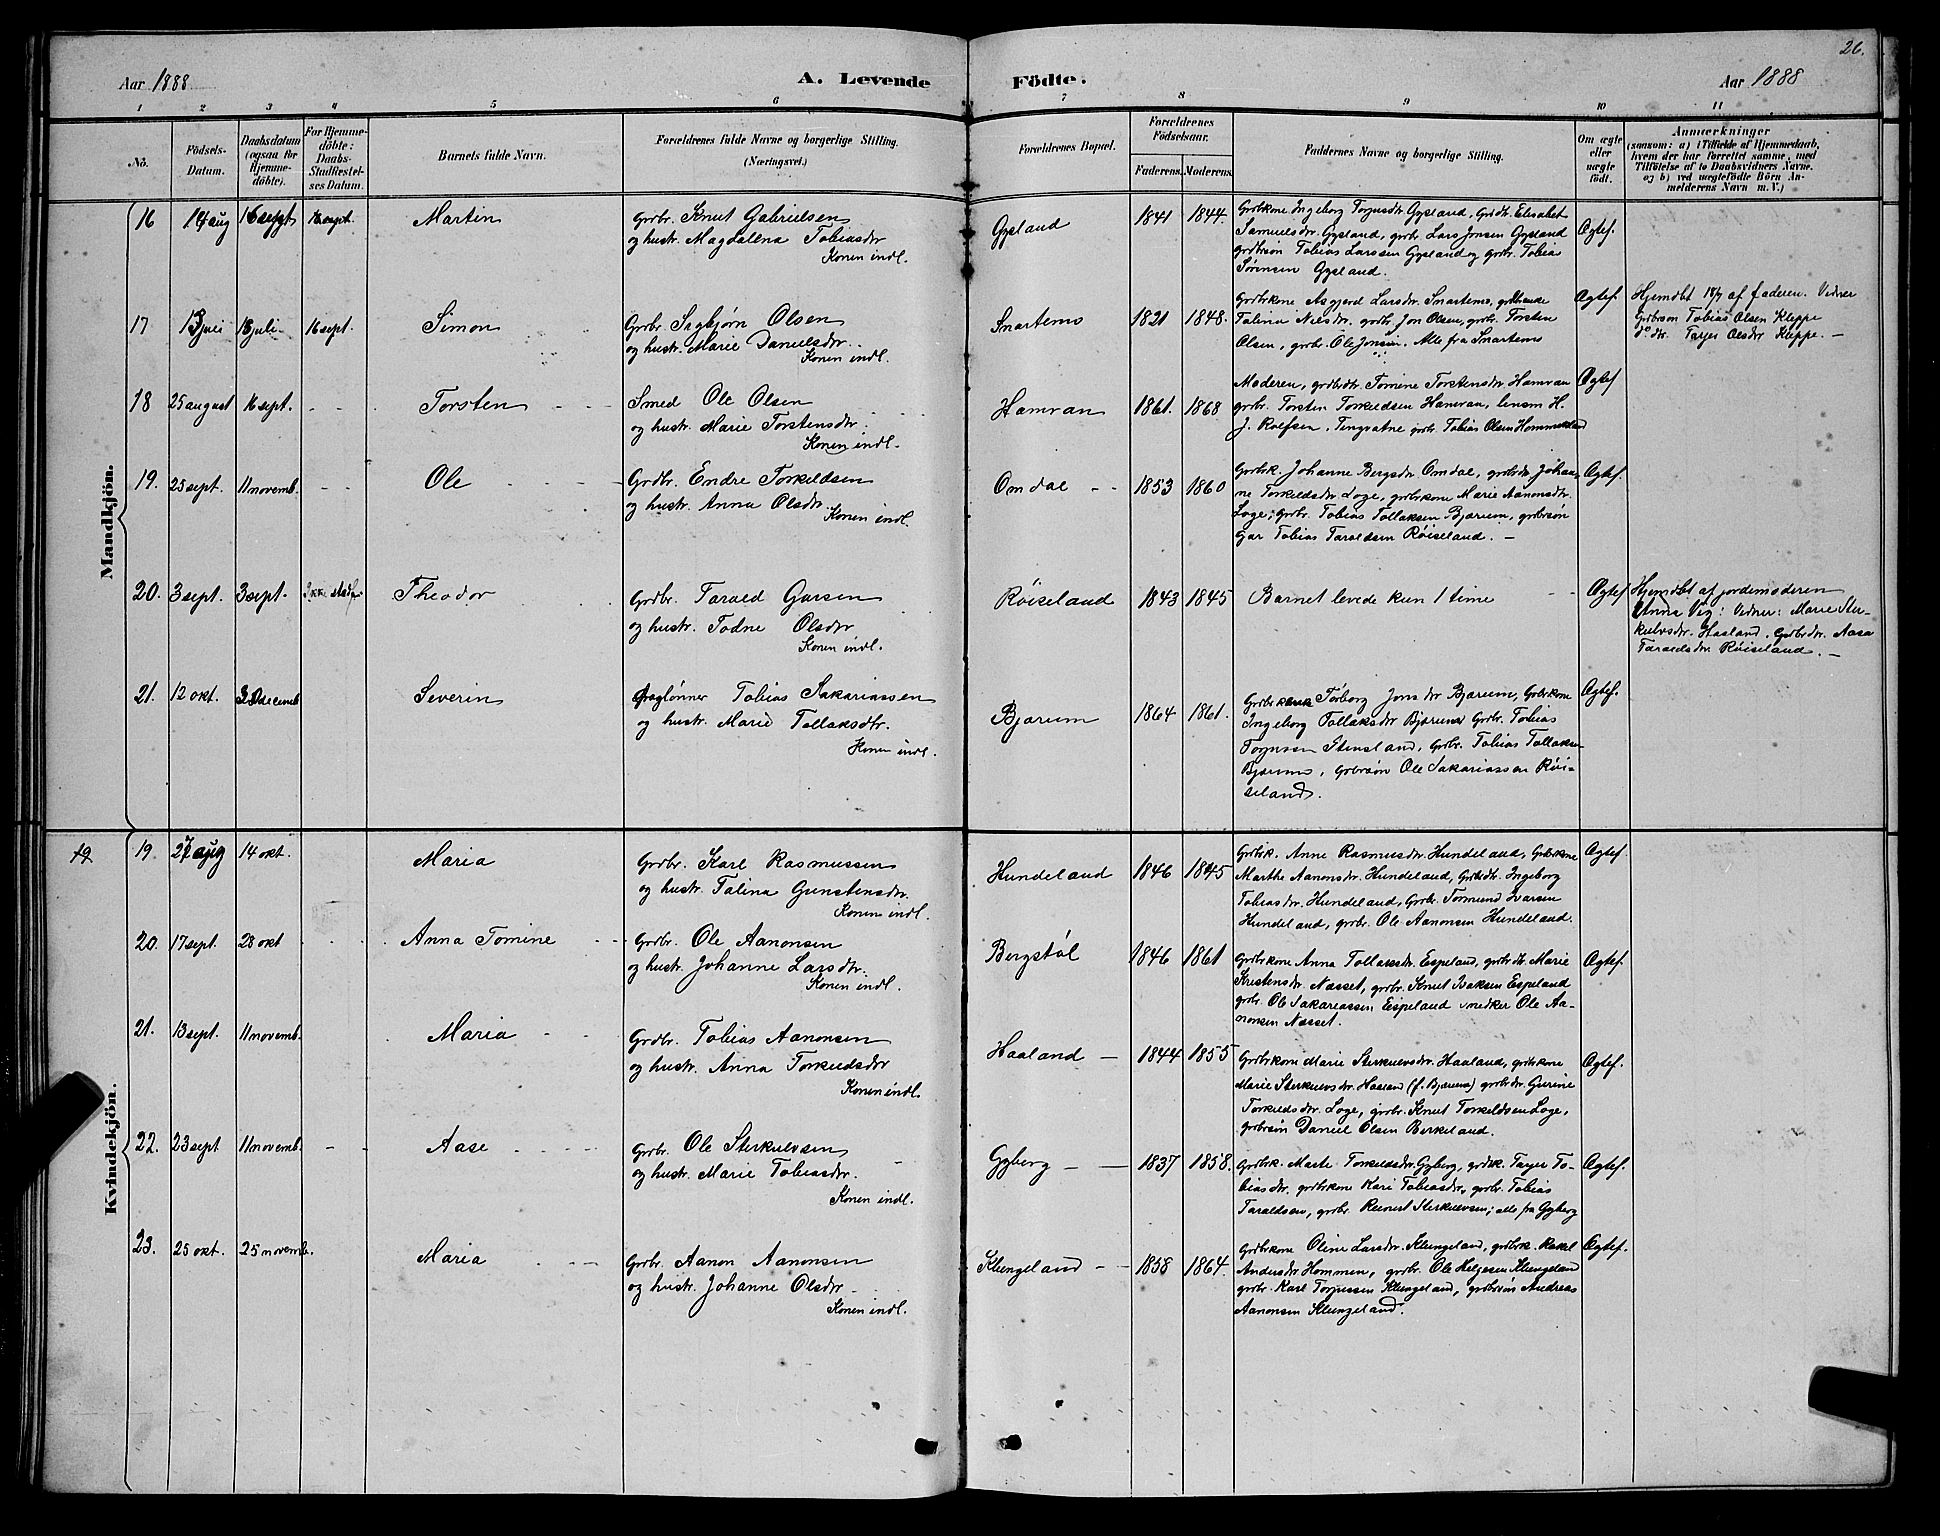 26.
Aar 1888 A. Levende Födte. Aar 1888
1 2 3 4 5 6 7 8 9 10 11
No.
Födsels-
Datum.
Daabsdatum
(ogsaa for
Hjemme-
döbte).
For Hjemme-
döbte:
Daabs-
Stadfæstel-
ses Datum.
Barnets fulde Navn.
Forældrenes fulde Navne og borgerlige Stilling.
(Næringsvei.)
Forældrenes Bopæl.
Forældrenes
Födselsaar.
Faderens. Moderens.
Faddernes Navne og borgerlige Stilling.
Om ægte
eller
uægte
født.
Anmærkninger
(saasom: a) i Tilfælde af Hjemmedaab,
hvem der har forrettet samme, med
Tilföielse af to Daabsvidners Navne.
og b) ved uægtefödte Börn An-
melderens Navn m. V.)
Mandkjön.
16 14 aug 16 sept 16 sept. Martin
Grdbr. Knut Gabrielsen
og hustr. Magdalena Tobiasdtr
Konen indl.
Gysland 1841 1844.
Grdbrkone Ingeborg Torjusdtr Gysland, Grdtr. Elisabet
Samuelsdr. Gysland, grdbr Lars Jonsen Gysland
grdbrsön Tobias Larssen Gysland og grdbr. Tobias
Sörensen Gysland.
Ægtef.
17 13 juli 18 juli 16 sept. Simon
Grdbr. Sigbjørn Olsen
og hustr. Marie Danielsdtr.
Konen indl.
Snartemo 1821 1848.
Grdbrkone Asgjerd Larsdtr. Snartemo,
Talina Nilsdtr. grdbr. Jon Olsen, grdbr. Torsten
Olsen, grdbr. Ole Jonsen. Alle fra Snartemo
Ægtef.
Hjemdbt 18/7 af faderen. Vidner
Grdbrsön Tobias Olsen Kleppe
do. dtr. Tarjer Olsdtr Kleppe. —
18 25 august 16 sept. Torsten
Smed Ole Olsen
og hustr. Marie Torstensdtr.
Konen indl.
Hamran 1861. 1868
Moderen, grdbrdtr. Tomine Torstensdtr. Hamran
grdbr. Torsten Torkildsen Hamran, lensm H.
J. Rolfsen, Tingvatne grdbr. Tobias Olsen Hommeland
Ægtef
19. 25 sept. 11 novemb. Ole
Grdbr. Endre Torkildsen
og hustr. Anna Olsdtr.
Konen indl.
Omdal 1853 1860
Grdbrk. Johanne Bergsdtr Omdal, grdbrdtr. Johan-
ne Torkildsdtr Loge, grdbrkone Marie Aanonsdtr.
Loge; grdbr. Tobias Tollaksen Bjærum, grdbrsön
Gar Tobias Taraldsen Röiseland. —
Ægtef.
20. 3 sept. 3 sept. Ikke stadf Theodor
Grdbr. Tarald Garsen
og hustr. Todne Olsdtr
Konen indl.
Röiseland 1843 1845
Barnet levede kun 1 time
Ægtef
Hjemdbt af jordemoderen
Anna Vig: Vidner: Marie Ster-
kulvsdtr. Haaland, Grdbrdtr. Aasa
Taraldsdtr Röiseland. —
21. 12 okt. decemb Severin
Daglønner Tobias Sakariassen
og hustr. Marie Tollaksdtr.
Konen indl.
Bjærum 1864 1861.
Grdbrkone Torborg Jonsdtr Bjærum, Grdbrkone
Ingeborg Tollaksdtr Bjærum Grdbr. Tobias
Torjussen Stensland, Grdbr. Tobias Tollaksen
Bjærum, Grdbrsön Ole Sakariassen Röi-
seland.
Ægtef.
Kvindekjön.
19 19. 27 aug 14 okt. Maria
Grdbr. Karl Rasmussen
og hustr. Talina Gunstensdtr.
Konen indl.
Hundeland 1846 1845
Grdbrk. Anne Rasmusdtr. Hundeland, Grdbrkone
Marthe Aanonsdtr. Hundeland, Grdbrdtr. Ingeborg
Tobiasdtr. Hundeland, Grdbr. Tormund Ivarsen
Hundeland, grdbr. Ole Aanonsen Hundeland.
Ægtef.
20. 17 sept. 28 okt Anna Tomine
Grdbr. Ole Aanonsen
og hustr. Johanne Larsdtr.
Konen indl.
Bergstöl 1846 1861
Grdbrkone Anna Tollaksdtr. Espeland, grdbrdtr. Marie
Kristensdtr. Næsset, grdbr. Knut Isaksen Espeland
grdbr. Ole Sakariassen Espeland smedker Ole Aa-
nonsen Næsset.
Ægtef.
21. 13 sept. 11 novemb. Maria
Grdbr. Tobias Aanonsen
og hustr. Anna Torkildsdtr
Konen indl.
Haaland — 1844 1855
Grdbrkone Marie Sterkulvsdtr. Haaland, grdbrkone
Marie Sterkulvsdtr. Haaland (f. Bjærum) grdbrdtr. Gurine
Torkildsdtr. Loge, grdbr. Knut Torkildsen Loge,
grdbrsön Daniel Olsen Birkeland.
Ægtef.
22. 23 sept 11 novemb. Aase
Grdbr. Ole Sterkulvsen
og hustr. Marie Tobiasdtr.
Konen indl.
Gyberg — 1837 1858.
Grdbrk. Marte Torkildsdtr. Gyberg, grdbrk. Tarjer To-
biasdtr, grdbrkone Kari Tobiasdtr, grdbr. Tobias
Taraldsen, grdbr. Reinert Sterkulvsen; alle fra Gyberg
Ægtef.
23. 25 okt. 25 novemb. Maria
Grdbr. Aanon Aanonsen
og hustr. Johanne Olsdtr
Konen indl.
Klungeland 1858 1864.
Grdbrkone Oline Larsdtr. Klungeland, grdbrk. Rakel
Andersdtr Hommen, grdbr. Ole Helgesen Klungeland
grdbr. Karl Torjussen Klungeland, grdbrsön Andreas
Aanonsen Klungeland.
Ægtef.